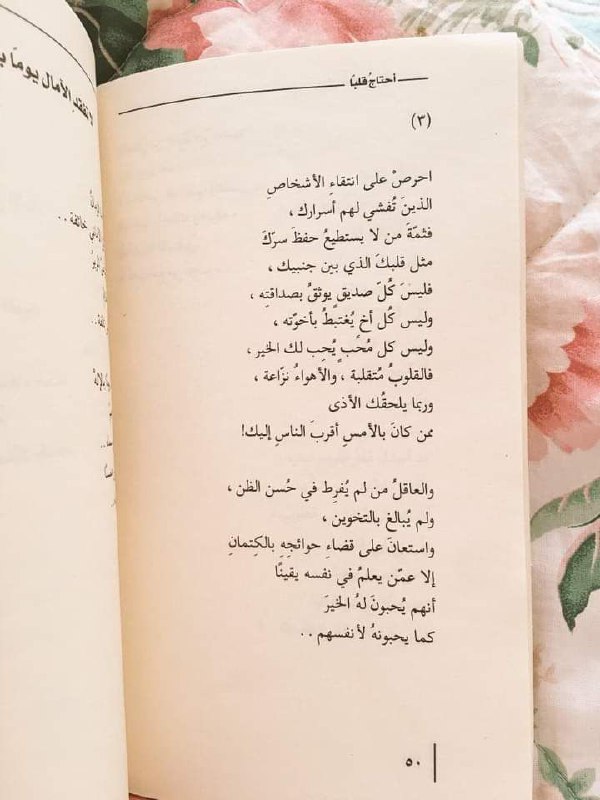 أحتاجُ قلبًا
(٣)
احرصْ على انتقاءِ الأشخاصِ
الذينَ تُفشي لهم أسرارك ،
فثمّةَ من لا يستطيعُ حفظَ سرّكَ
مثل قلبكَ الذي بين جنبيك ،
فليسَ كُلّ صديقٍ يوثقُ بصداقتِه ،
وليس كُل أخٍ يُغتبطُ بأخوّته ،
وليس كل مُحبٍ يُحِب لك الخير ،
فالقلوبُ مُتقلبة ، والأهواءُ نزّاعة ،
وربما يلحقُك الأذى
ممن كانَ بالأمسِ أقربَ الناسِ إليك!
والعاقلُ من لم يُفرِط في حُسن الظن ،
ولم يُبالغ بالتخوين ،
واستعانَ على قضاءِ حوائجِهِ بالكِتمانِ
إلا عمّن يعلمُ في نفسه يقينًا
أنهم يُحبونَ لهُ الخيرَ
كما يحبونهُ لأنفسهم ..
٥٠
الآمال يومًا